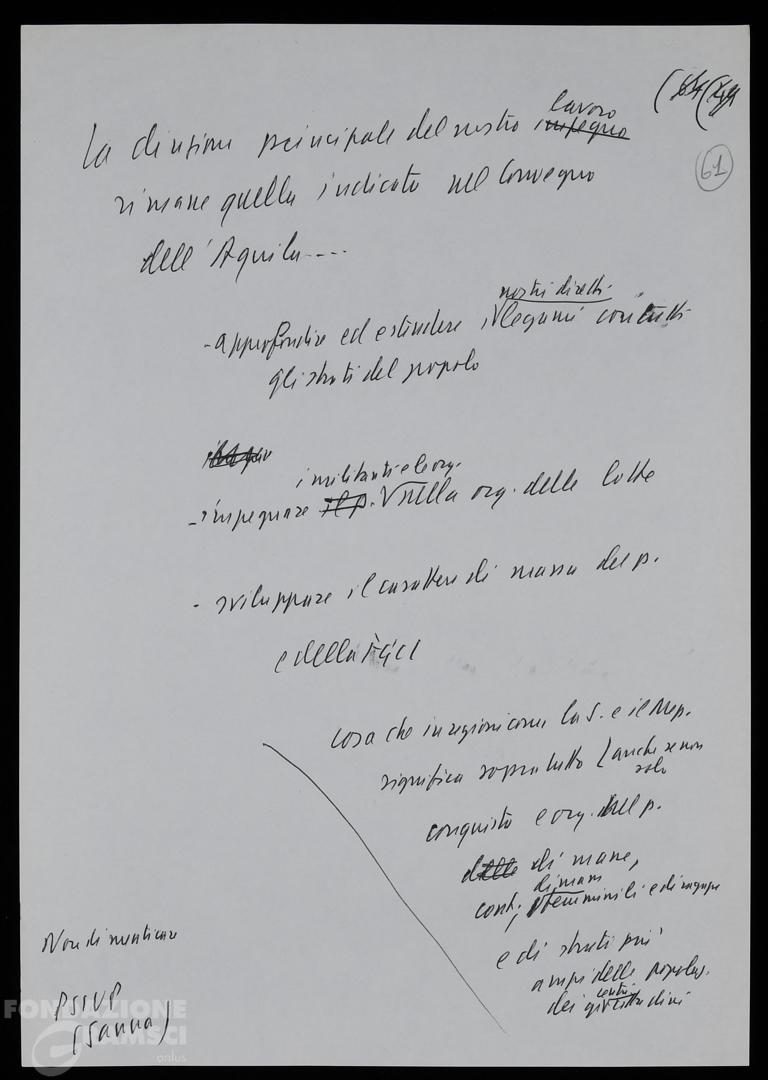 61
lavoro
La direzione principale del nostro impegno
rimane quella indicata nel Convegno
dell'Aquila ....
nostri diretti
- approfondire ed estendere i legami con tutti
gli strati del popolo
i militanti e le org.
- impegnare il p. nella org. delle lotte
- sviluppare il carattere di massa del p.
e della FGCI
cosa che in regioni come la S. e il Mep.
significa sopratutto (anche se non
solo
conquista e org. nel p.
delle di masse,
di mass
cont. femminili e di ragazze
e di strati più
ampi delle popolaz.
centri
dei cittadini
Non dimenticare
PSIUP
(Sanna)
FONDAZIONE
GRAMSCI
onlus